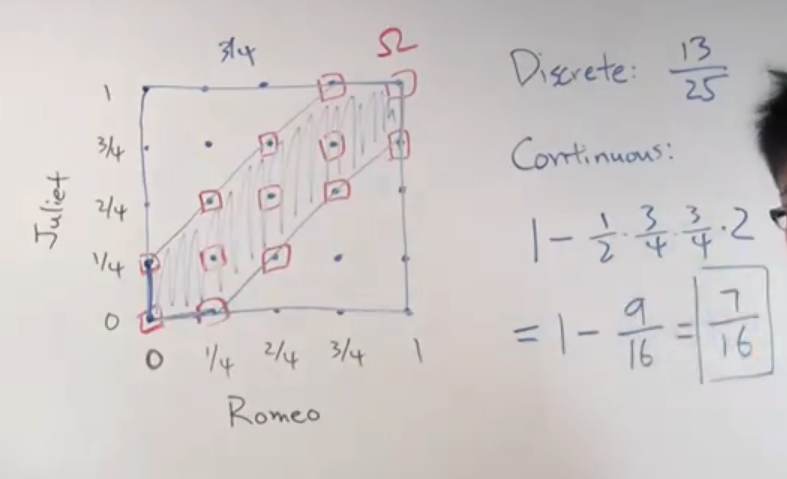 3/4
Ω
1
3/4
2/4
1/4
0
Juliet
0 1/4 2/4 3/4 1
Romeo
Discrete: 13/25
Continuous:
1 - 1/2 · 3/4 · 3/4 · 2
= 1 - 9/16 = 7/16